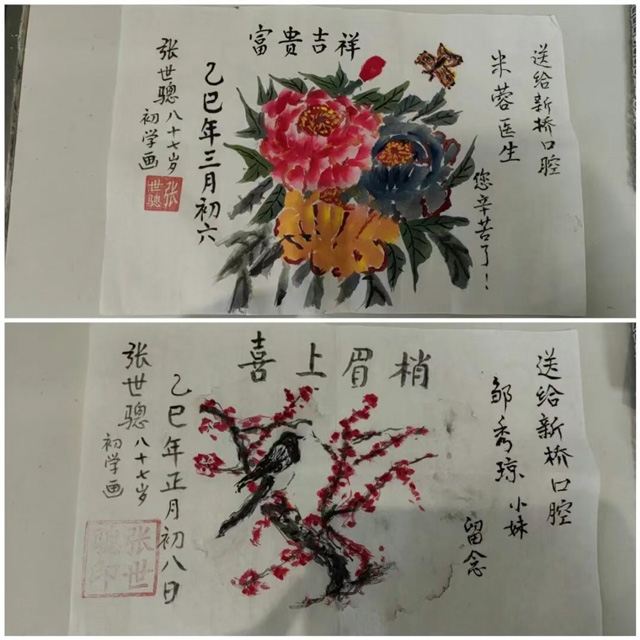 送给新桥口腔
米蓉医生
您辛苦了！
富贵吉祥
乙巳年三月初六
张世骢八十七岁
初学画
张世骢
送给新桥口腔
邹秀琼小妹
留念
喜上眉梢
乙巳年正月初八日
张世骢八十七岁
初学画
张世骢印